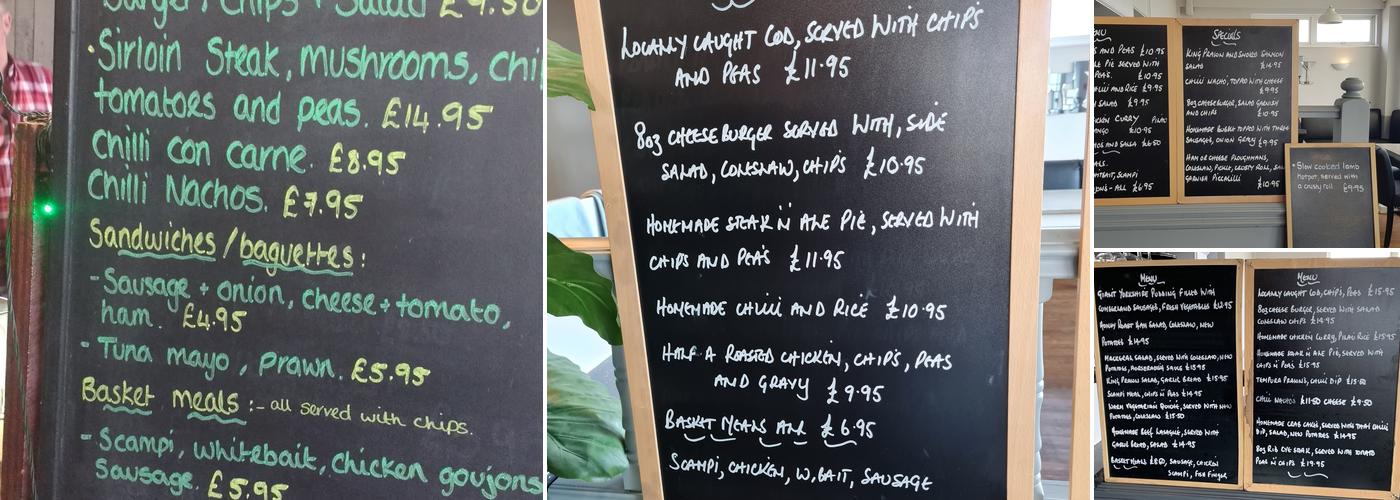 Burger, Chips + Salad £9.50
Sirloin Steak, mushrooms, chi
tomatoes and peas. £14.95
Chilli con carne. £8.95
Chilli Nachos. £7.95
Sandwiches / baguettes:
- Sausage + onion, cheese + tomato,
ham. £4.95
- Tuna mayo, prawn. £5.95
Basket meals :- all served with chips.
- Scampi, whitebait, chicken goujons
Sausage. £5.95
LOCALLY CAUGHT COD, SERVED WITH CHIPS
AND PEAS £11.95
8oz CHEESE BURGER SERVED WITH, SIDE
SALAD, COLESLAW, CHIPS £10.95
HOMEMADE STEAK N ALE PIE, SERVED WITH
CHIPS AND PEAS £11.95
HOMEMADE CHILLI AND RICE £10.95
HALF A ROASTED CHICKEN, CHIPS, PEAS
AND GRAVY £9.95
BASKET MEALS ALL £6.95
SCAMPI, CHICKEN, W.BAIT, SAUSAGE
NU
S AND PEAS £10.95
LE PIE SERVED WITH
PEAS. £10.95
CHILLI AND RICE £9.95
SALAD £9.95
CKEN CURRY PILAU
MANGO £10.95
HOS AND SALSA £6.50
ALS.
WHITBAIT, SCAMPI
ONS - ALL £6.95
SPECIALS
KING PRAWN AND SMOKED SALMON
SALAD £14.95
CHILLI NACHO'S, TOPPED WITH CHEESE
£9.95
8oz CHEESE BURGER, SALAD GARNISH
AND CHIPS £10.95
HOMEMADE BUBBLE TOPPED WITH THREE
SAUSAGES, ONION GRAVY £9.95
HAM OR CHEESE PLOUGHMANS,
COLESLAW, PICKLE, CRUSTY ROLL, SALAD
GARNISH PICCALILLI £10.95
• Slow cooked lamb
hotpot, served with
a crusty roll £9.95
MENU
GIANT YORKSHIRE PUDDING FILLED WITH
CUMBERLAND SAUSAGES, FRESH VEGETABLES £12.95
HONEY ROAST HAM SALAD, COLESLAW, NEW
POTATOES £14.95
MACKEREL SALAD, SERVED WITH COLESLAW, NEW
POTATOES, HORSERADISH SAUCE £13.95
KING PRAWN SALAD, GARLIC BREAD £15.95
SCAMPI MEAL, CHIPS N PEAS £14.95
WARM VEGETARIAN QUICHE, SERVED WITH NEW
POTATOES, COLESLAW £13.50
HOMEMADE BEEF LASAGNE, SERVED WITH
GARLIC BREAD, SALAD £14.95
BASKET MEALS £8.50, SAUSAGE, CHICKEN
SCAMPI, FISH FINGER
MENU
LOCALLY CAUGHT COD, CHIPS, PEAS £15.95
8oz CHEESE BURGER, SERVED WITH SALAD
COLESLAW CHIPS £14.95
HOMEMADE CHICKEN CURRY, PILAU RICE £15.95
HOMEMADE STEAK N ALE PIE, SERVED WITH
CHIPS N PEAS £15.95
TEMPURA PRAWNS, CHILLI DIP £15.50
CHILLI NACHO'S £11.50 CHEESE £9.50
HOMEMADE CRAB CAKES, SERVED WITH THAI CHILLI
DIP, SALAD, NEW POTATOES £14.95
8oz RIB EYE STEAK, SERVED WITH TOMATO
PEAS N CHIPS £19.95